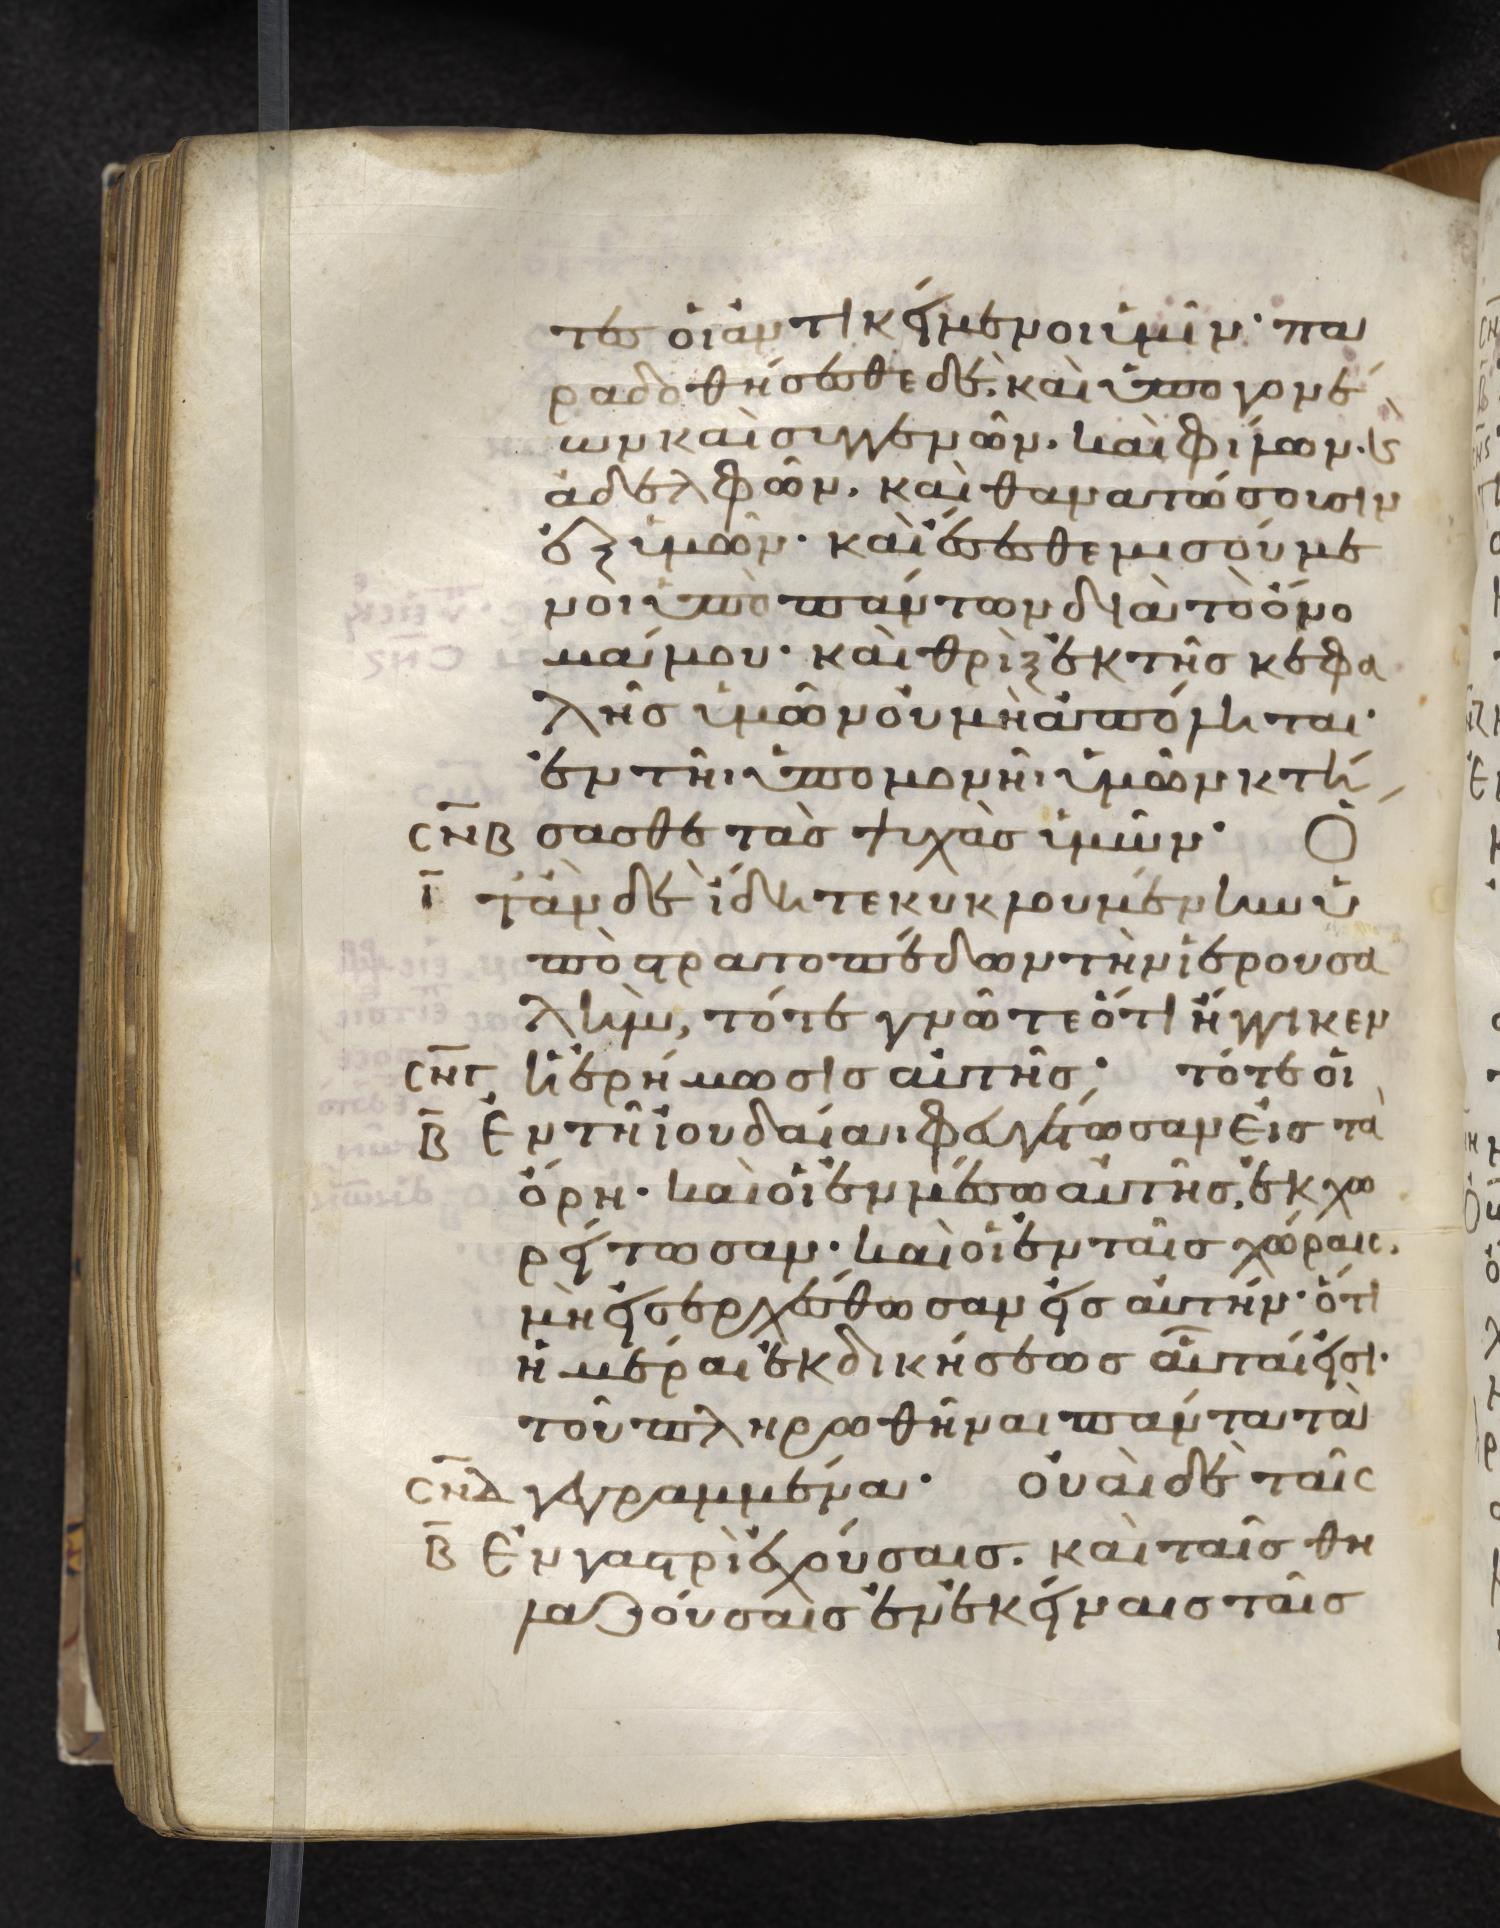 τες οἱ ἀντικείμενοι ὑμῖν· πα
ραδοθήσεσθε δὲ. καὶ ὑπὸ γονέ
ων καὶ συγγενῶν. καὶ φίλων. κὶ
ἀδελφῶν. καὶ θανατώσουσιν
ἐξ ὑμῶν· καὶ ἔσεσθε μισούμε
νοι ὑπὸ πάντων διὰ τὸ ὄνο
μά μου· καὶ θρὶξ ἐκ τῆς κεφα
λῆς ὑμῶν οὐ μὴ ἀπόληται·
ἐν τῆι ὑπομονῆι ὑμῶν κτή
ϹΝΒ σασθε τὰς ψυχὰς ὑμῶν· Ὅ
Ι τἂν δὲ ἴδητε κυκλουμένην ὑ
πὸ στρατοπέδων τὴν ἱερουσα
λήμ, τότε γνῶτε ὅτι ἤγγικεν
ϹΝΓ ἡ ἐρήμωσις αὐτῆς· τότε οἱ
Β Ἐν τῆ ἰουδαίαι φευγέτωσαν εἰς τὰ
ὄρη· καὶ οἱ ἐν μέσω αὐτῆς, ἐκχω
ρείτωσαν· καὶ οἱ ἐν ταῖς χώραις.
μὴ εἰσερχέσθωσαν εἰς αὐτήν· ὅτι
ἡμέραι ἐκδικήσεως αὗταί εἰσι·
τοῦ πληρωθῆναι πάντα τὰ
ϹΝΔ γεγραμμένα· οὐαὶ δὲ ταῖς
Β Ἐν γαστρὶ ἐχούσαις. καὶ ταῖς θη
λαζούσαις ἐν ἐκείναις ταῖς